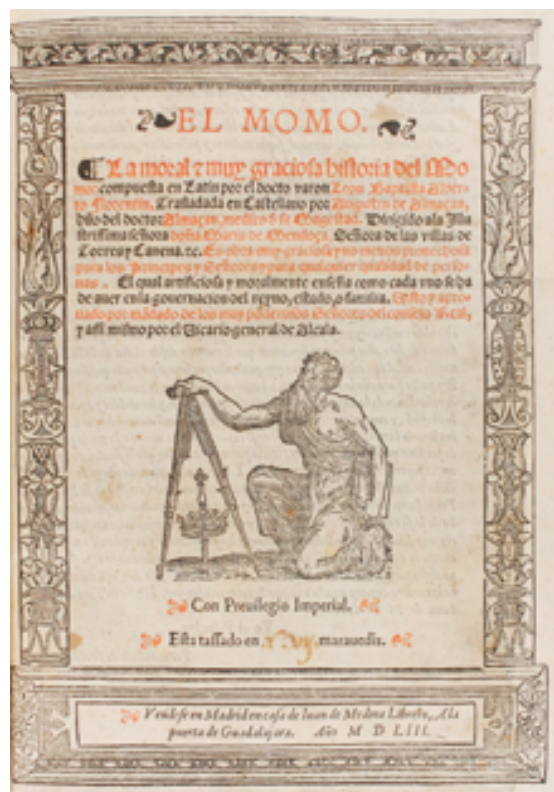 EL MOMO.
¶ La moral ⁊ muy graciosa historia del Mo
mo: compuesta en Latin por el docto varon Leon Baptista Alber
to Florentin. Trasladada en Castellano por Augustin de Almaçan,
hijo del doctor Almaçan, medico ð su Magestad. Dirigido ala Illu
strissima señora doña Maria de Mendoça, Señora de las villas de
Torres y Canena. ⁊c. Es obra muy graciosa y no menos prouechosa
para los Principes y Señores y para qualquier qualidad de perso-
nas. El qual artificiosa y moralmente enseña como cada vno se ha
de auer en la gouernacion del reyno, estado, o familia. Visto y apro-
uado por mãdado de los muy poderosos Señores del consejo Real,
y assi mismo por el Vicario general de Alcala.
Con Preuilegio Imperial.
Esta tassado en marauedis.
Vendese en Madrid en casa de Iuan de Medina Librero, A la
puerta de Guadalajara. Año M D LIII.